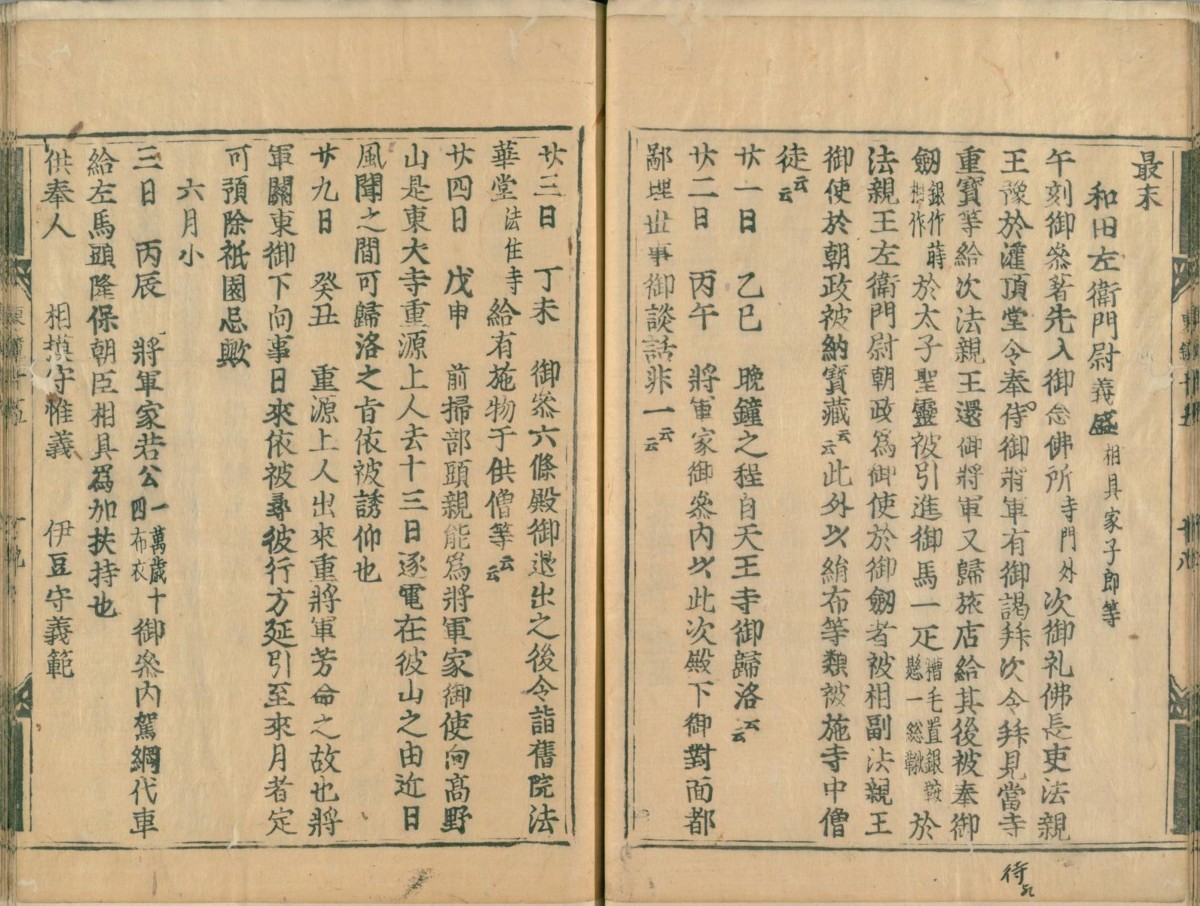 最末
和田左衛門尉義盛相具家子郎等
午刻御参著先入御念佛所寺門外次御礼佛長吏法親
王豫於灌頂堂令奉侍御將軍有御謁拜次令拜見當寺
重寳等給次法親王還御將軍又歸旅店給其後被奉御
劔銀作蒔柄作於太子聖靈被引進御馬一疋糟毛置銀鞍懸一総鞦於
法親王左衛門尉朝政爲御使於御劔者被相副法親王
御使於朝政被納寳藏云云此外以絹布等類被施寺中僧
徒云云
廿一日 乙巳 晩鐘之程自天王寺御歸洛云云
廿二日 丙午 將軍家御参内以此次殿下御對面都
鄙理世事御談話非一云云
廿三日 丁未 御参六條殿御退出之後令詣舊院法
華堂法住寺給有施物于供僧等云云
廿四日 戊申 前掃部頭親能爲將軍家御使向髙野
山是東大寺重源上人去十三日逐電在彼山之由近日
風聞之間可歸洛之旨依被誘仰也
廿九日 癸丑 重源上人出來重將軍芳命之故也將
軍關東御下向事日來依被尋彼行方延引至來月者定
可預除祇園忌歟
六月小
三日 丙辰 將軍家若公一萬歳十四布衣御参内駕網代車
給左馬頭隆保朝臣相具爲加扶持也
供奉人 相摸守惟義 伊豆守義範
待